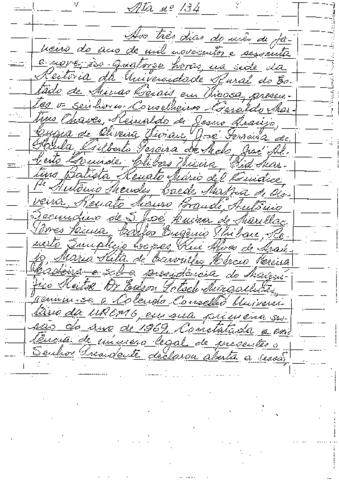 Ata nº 134
Aos três dias do mês de ja-
neiro do ano de mil novecentos e sessenta
e nove, às quatorze horas, na sede da
Reitoria da Universidade Rural do Es-
tado de Minas Gerais, em Viçosa, presen-
tes os senhores Conselheiros Geraldo Mar-
tins Chaves, Reinaldo de Jesus Araújo,
de Oliveira José Ferreira de
Paula, Gilberto Pereira de Melo, José Al-
berto Gomide, Clibas Vieira,
Batista, Renato Mário del Giudice,
Pe Antônio Mendes, de Oli-
veira, Renato Mauro Brandi, Antônio
Secundino de S. José,
Torres Carlos Eugênio Thibau, Re-
nato Simplício Lopes, Rui Alves de Araú-
jo, Maria de Carvalho, Márcio Pereira
e sob a presidência do Magní-
fico Reitor Dr Edson Potsch Magalhães,
reuniu-se o Colendo Conselho Universi-
tário da UREMG, em sua primeira ses-
são do ano de 1969. Constatada a exis-
tência de número legal de presentes o
Senhor Presidente declarou aberta a sessão,